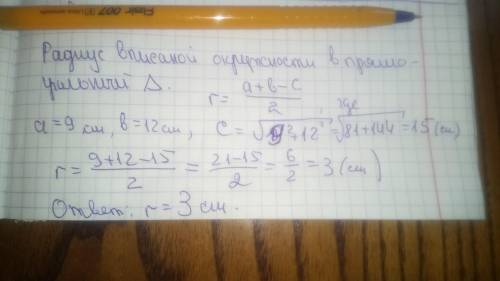 Flair 007
Радиус вписаной окружности в прямо-
угольный Δ.
r = (a+b-c)/2, где
a = 9 см, b = 12 см, c = √(9²+12²) = √(81+144) = 15 (см)
r = (9+12-15)/2 = (21-15)/2 = 6/2 = 3 (см)
Ответ: r = 3 см.